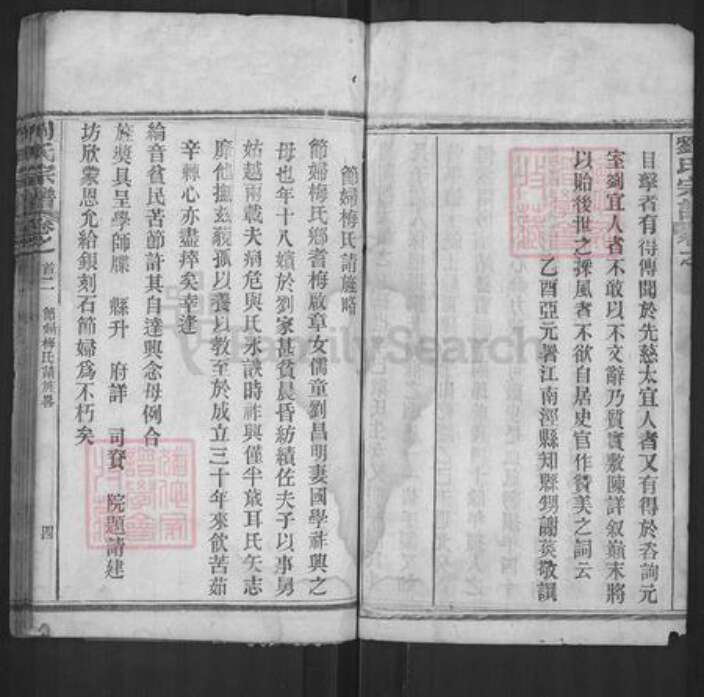 目擊者有得傳聞於先慈太宜人者又有得於咨詢元
室劉宜人者不敢以不文辭乃質實敷陳詳叙巔末將
以貽後世之採風者不欲自居史官作贊美之詞云
乙酉亞元署江南涇縣知縣甥謝 敬譔
節婦梅氏請旌略
節婦梅氏鄉耆梅啟章女儒童劉昌明妻國學祚興之
母也年十八嬪於劉家甚貧晨昏紡績佐夫子以事舅
姑越兩載夫病危與氏永訣時祚興僅半歲耳氏矢志
靡他撫茲藐孤以養以教至於成立三十年來飲苦茹
辛棘心亦盡瘁矣幸逢
綸音貧民苦節許其自達興念母例合
旌獎具呈學師牒 縣升 府詳 司賫 院題請建
坊欣蒙恩允給銀刻石節婦爲不朽矣
劉氏宗譜 卷之首二 節婦梅氏請旌畧 四
FamilySearch